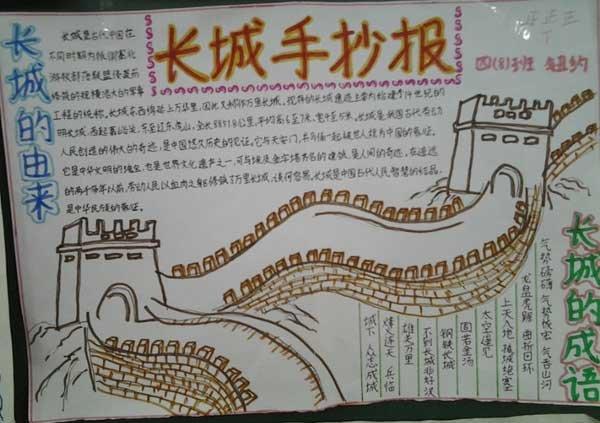 长城手抄报
四(8)班
长城的由来
长城是古代中国在
不同时期为抵御塞北
游牧部落联盟侵袭而
修筑的规模浩大的军事
工程的统称。长城东西绵延上万华里,因此又称作万里长城。现存的长城遗迹主要为始建于14世纪的
明长城,西起嘉峪关,东至辽东虎山,全长8851.8公里,平均高6至7米,宽4至5米。长城是我国古代劳动
人民创造的伟大的奇迹,是中国悠久历史的见证。它与天安门,兵马俑一起被世人视为中国的象征。
它是中华文明的瑰宝,也是世界文化遗产之一,可与埃及金字塔齐名的建筑,是人间的奇迹,在遥远
的两千多年以前,劳动人民以血肉之躯修筑了万里长城,谈何容易。长城是中国古代人民智慧的结晶,
是中华民族的象征。
长城的成语
气势磅礴 气势恢宏 气吞山河
龙盘虎踞 曲折回环
上天入地 横城绝塞
太空遥见
固若金汤
钢铁长城
不到长城非好汉
雄关万里
烽火连天 兵临
城下 众志成城